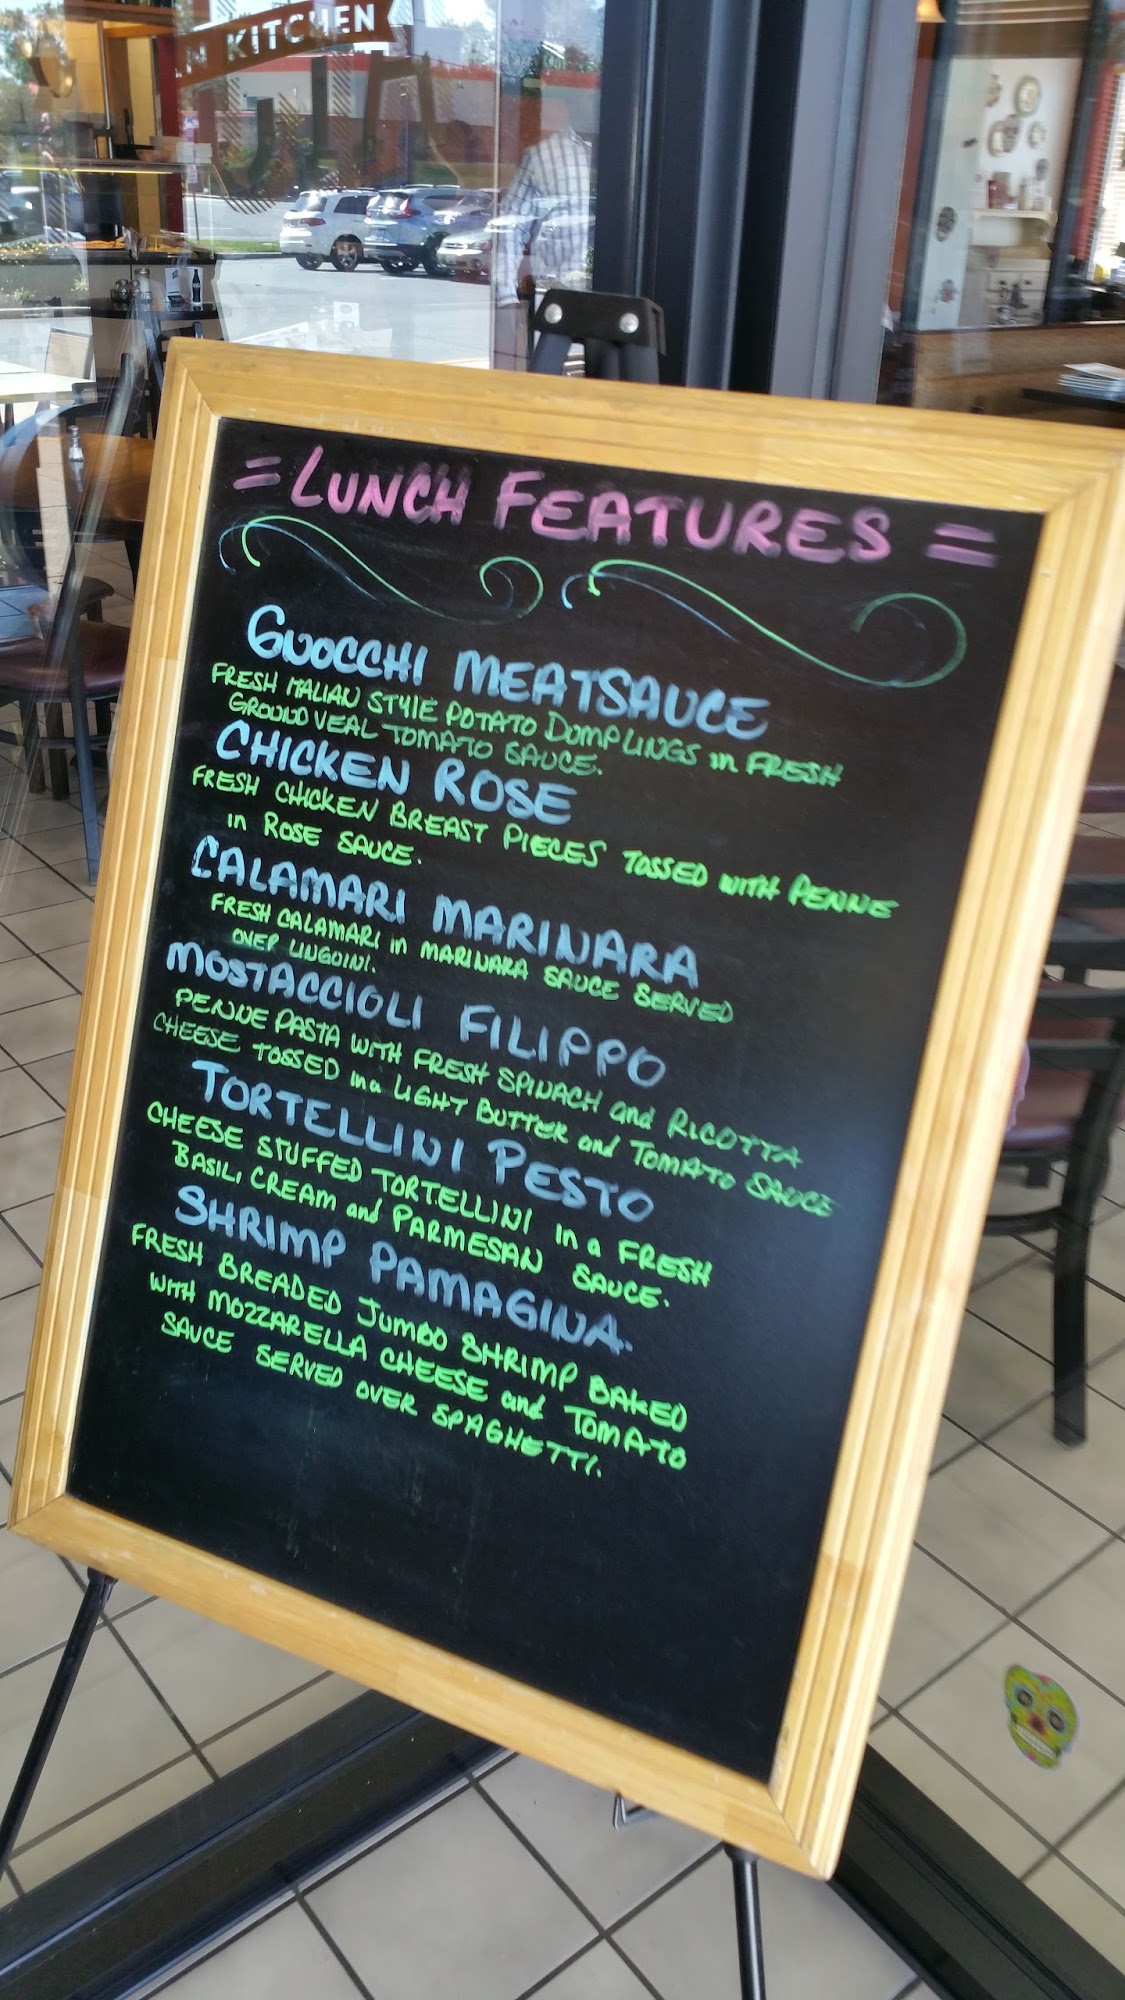 KITCHEN
= LUNCH FEATURES =
GNOCCHI MEATSAUCE
FRESH ITALIAN STYLE POTATO DUMPLINGS in FRESH
GROUND VEAL TOMATO SAUCE.
CHICKEN ROSE
FRESH CHICKEN BREAST PIECES TOSSED WITH PENNE
in ROSE SAUCE.
CALAMARI MARINARA
FRESH CALAMARI in MARINARA SAUCE SERVED
OVER LINGUINI.
MOSTACCIOLI FILIPPO
PENNE PASTA WITH FRESH SPINACH and RICOTTA
CHEESE TOSSED in a LIGHT BUTTER and TOMATO SAUCE
TORTELLINI PESTO
CHEESE STUFFED TORTELLINI in a FRESH
BASIL, CREAM and PARMESAN SAUCE.
SHRIMP PAMAGINA.
FRESH BREADED JUMBO SHRIMP BAKED
WITH MOZZARELLA CHEESE and TOMATO
SAUCE SERVED OVER SPAGHETTI.